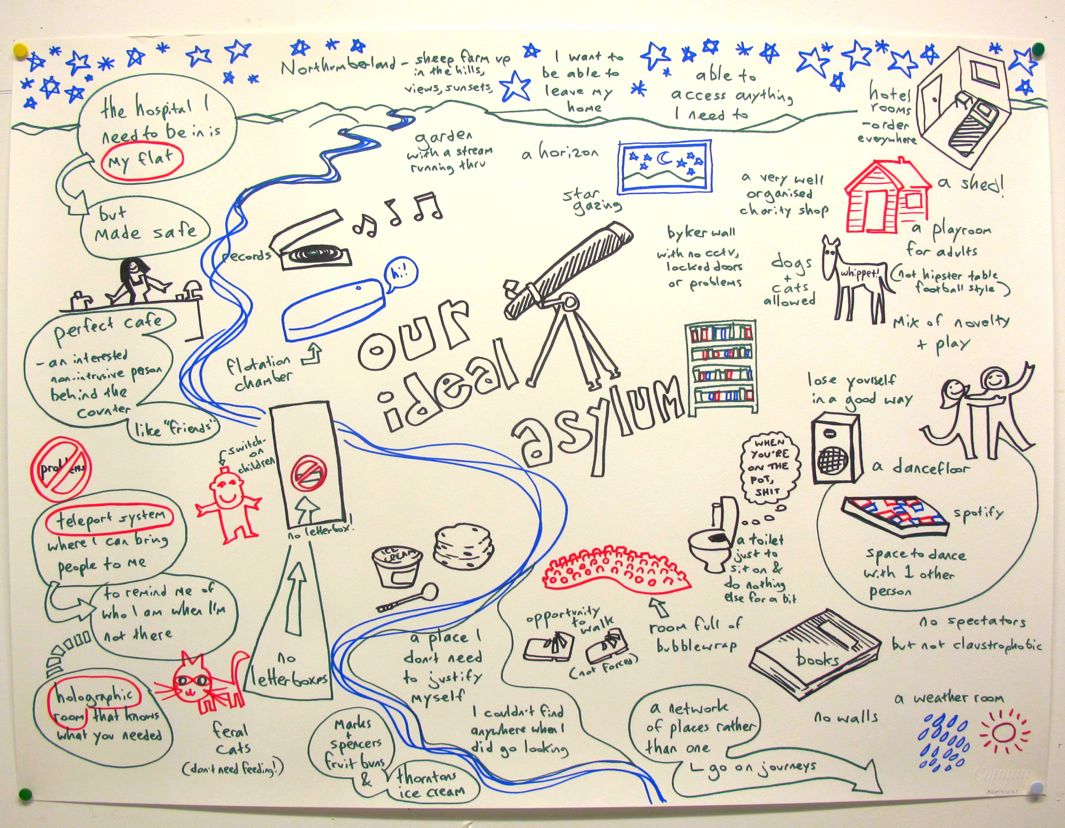 Northumberland - sheep farm up
in the hills,
views, sunsets
I want to
be able to
leave my
home
able to
access anything
I need to
hotel
rooms
-order
everywhere
the hospital I
need to be in is
my flat
but
made safe
garden
with a stream
running thru
a horizon
star
gazing
a very well
organised
charity shop
a shed!
a playroom
for adults
(not hipster table
football style)
mix of novelty
+ play
whippet!
dogs
+
cats
allowed
byker wall
with no cctv,
locked doors
or problems
records
hi!
flotation
chamber
our
ideal
asylum
perfect cafe
- an interested
non-intrusive person
behind the
counter
like "friends"
switch-
on
children
problems
no letterbox!
no
letterboxes
teleport system
where I can bring
people to me
to remind me of
who I am when I'm
not there
holographic
room that knows
what you needed
feral
cats
(don't need feeding!)
Marks
+
spencers
fruit buns
&
thorntons
ice cream
ICE
CREAM
a place I
don't need
to justify
myself
I couldn't find
anywhere when I
did go looking
opportunity
to
walk
(not forced)
room full of
bubblewrap
WHEN
YOU'RE
ON THE
POT,
SHIT
a toilet
just to
sit on &
do nothing
else for a bit
lose yourself
in a good way
a dancefloor
spotify
space to dance
with 1 other
person
no spectators
but not claustrophobic
books
a network
of places rather
than one
go on journeys
no walls
a weather room